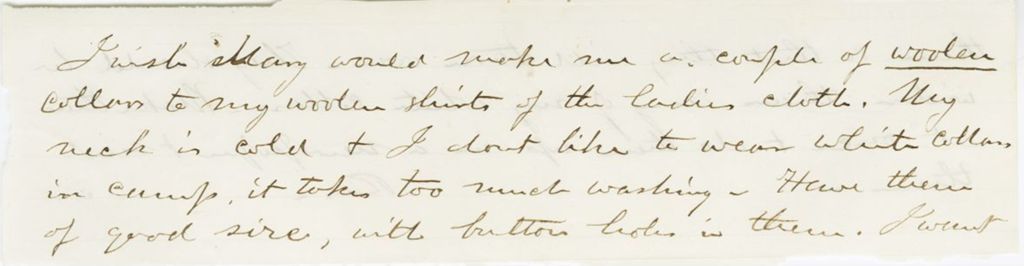 I wish Mary would make me a couple of woolen
collars to my woolen shirts of the ladies cloth. My
neck is cold & I dont like to wear white collars
in camp, it takes too much washing - Have them
of good size, with button holes in them. I want